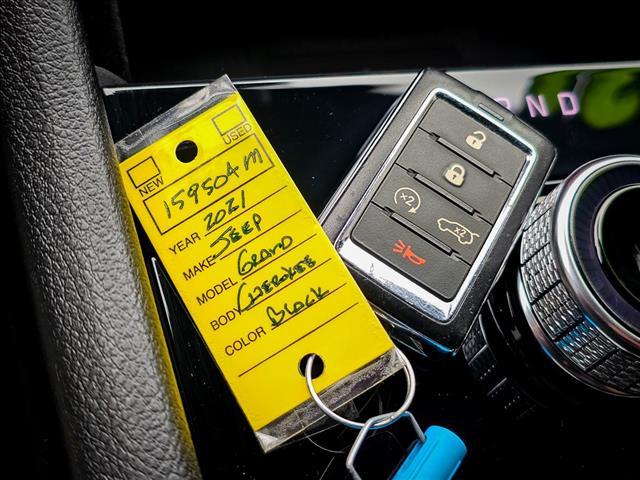 NEW USED
159504M
YEAR 2021
MAKE JEEP
MODEL GRAND
BODY CHEROKEE
COLOR BLACK
X2
X2
RND